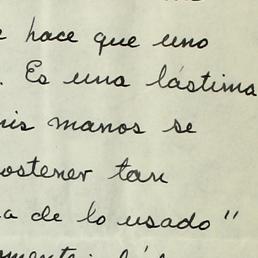 hace que uno
. Es una lástima
mis manos se
sostener tan
a de lo usado"